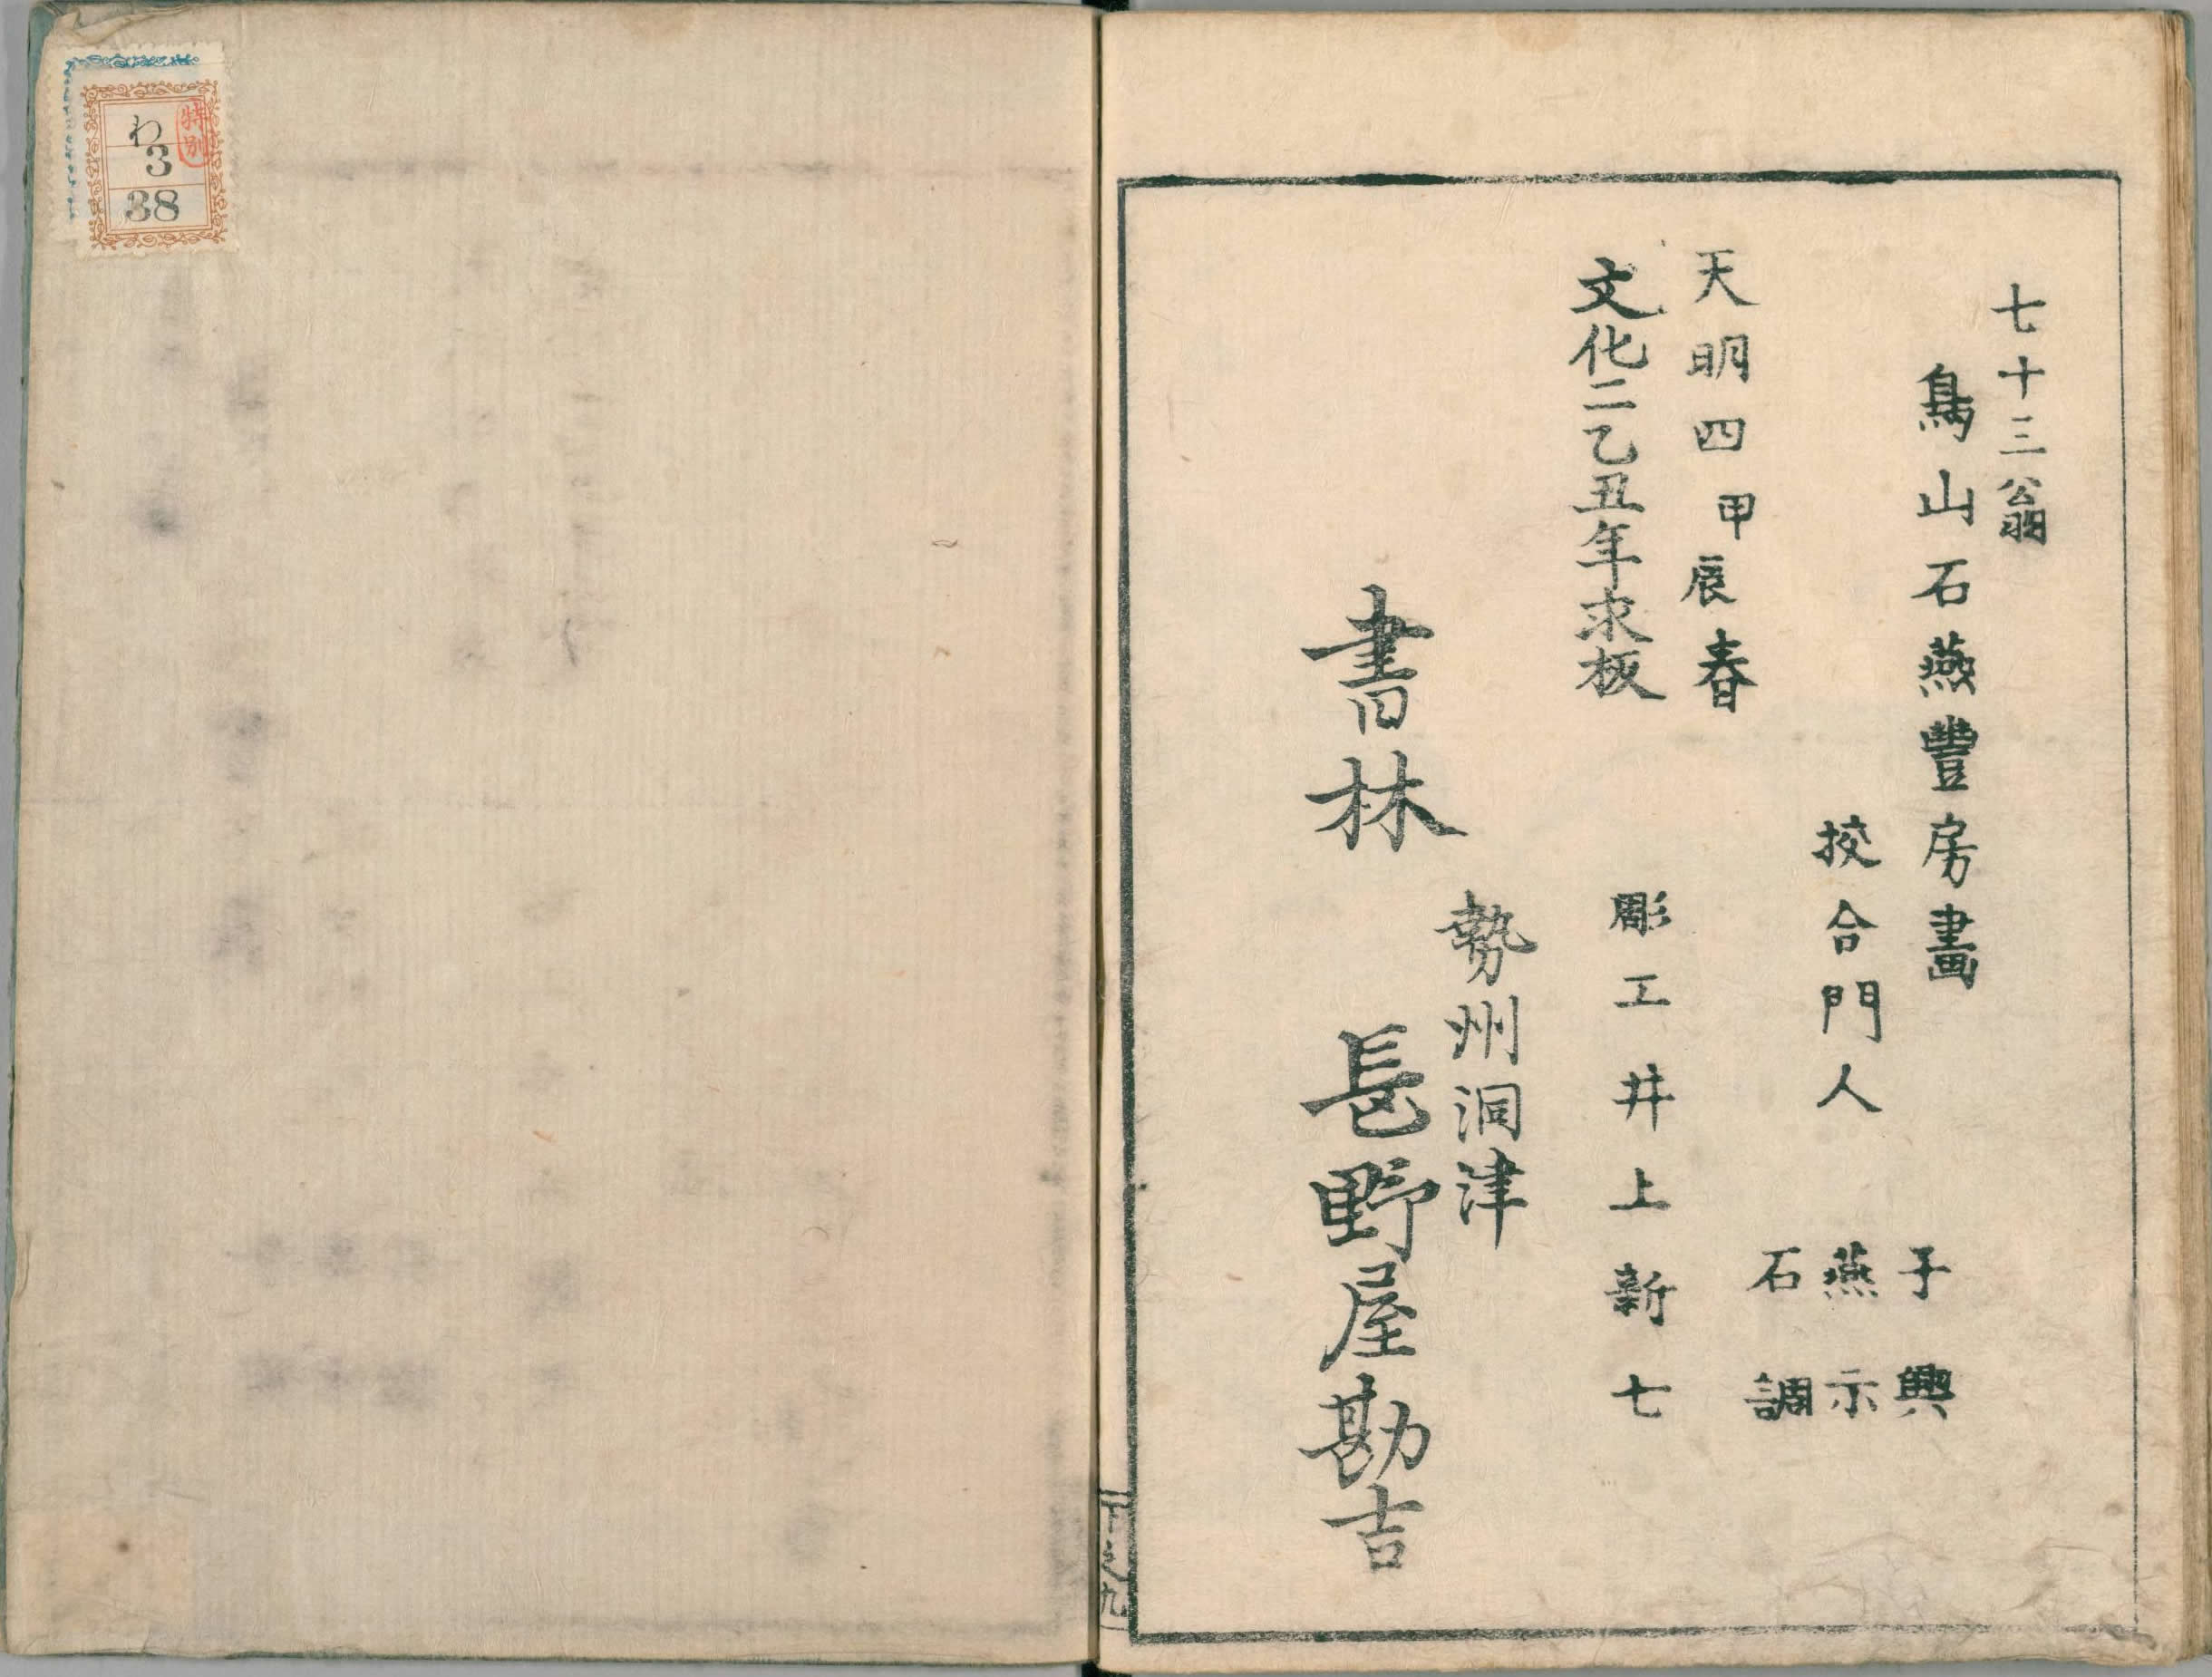 七十三翁
鳥山石燕豐房畫
挍合門人
子興
燕示
石調
天明四甲辰春
文化二乙丑年求板
彫工井上新七
勢州洞津
書林 長野屋勘吉
下之九
わ
3
38
特別